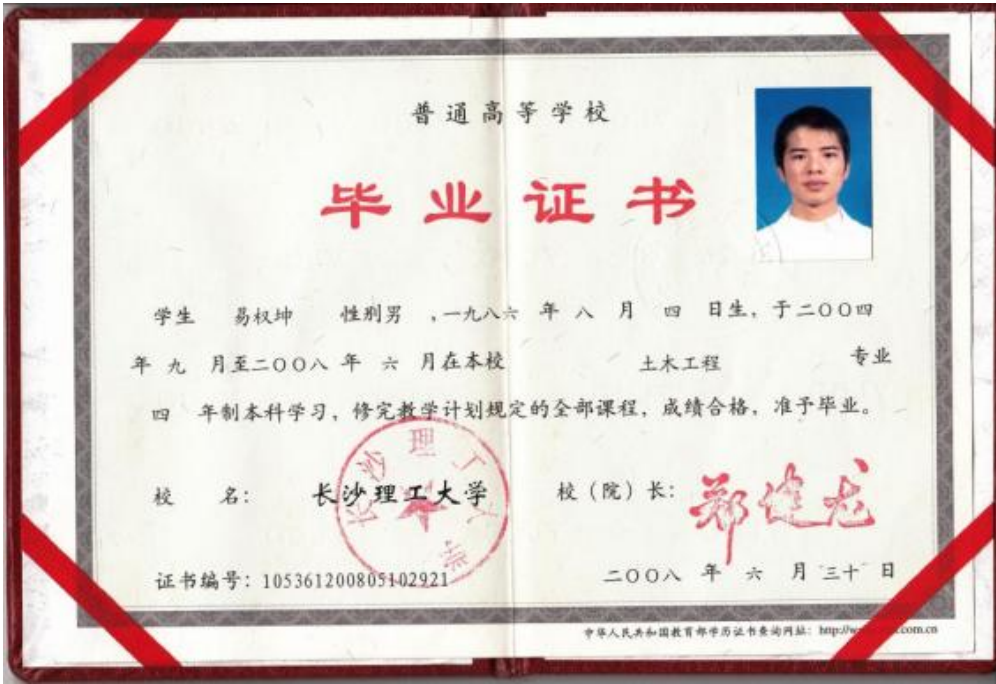 普通高等学校
毕业证书
学生 易权坤 性别男 ,一九八六 年 八 月 四 日生，于二〇〇四
年 九 月至二〇〇八 年 六 月在本校 土木工程 专业
四 年制本科学习，修完教学计划规定的全部课程，成绩合格，准予毕业。
长沙理工大学
校 名： 长沙理工大学 校（院）长： 郑健龙
证书编号：105361200805102921 二〇〇八 年 六 月 三十 日
中华人民共和国教育部学历证书查询网址： http://w com.cn